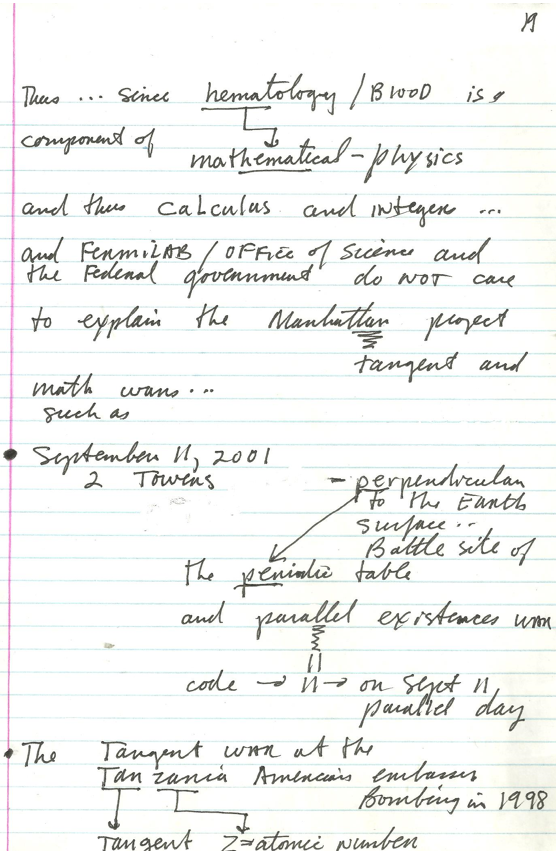 19
Thus ... since hematology / Blood is a
component of
mathematical - physics
and thus calculus and integers ...
and FermiLAB / OFFICE of Science and
the Federal government do NOT care
to explain the Manhattan project
tangent and
math wars ...
such as
• September 11, 2001
2 Towers
- perpendicular
to the Earth
surface ...
Battle site of
the periodic table
and parallel existences war
||
code → 11 → on Sept 11,
parallel day
• The Tangent war at the
Tanzania American's embassy
Bombing in 1998
Tangent Z = atomic number